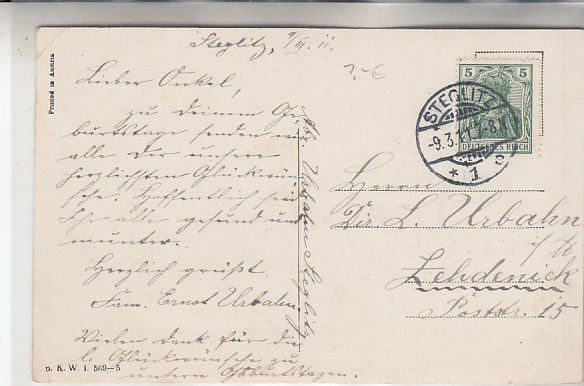 Steglitz, 9/III. 11.
Lieber Onkel,
zu deinem Ge
burtstage senden wir
alle dir unsere
herzlichsten Glückwün
sche. Hoffentlich seid
Ihr alle gesund und
munter.
Herzlich grüßt
Fam. Ernst Urbahn.
Vielen Dank für die
l. Glückwünsche zu
unsern Geburtstagen.
Urbahn Steglitz
?-6
5 5
DEUTSCHES REICH
STEGLITZ
-9.3.11.7-8.N
* 1
Herrn
Dir. L. Urbahn
Zehdenick
Poststr. 15
Printed in Austria
B. K. W. I. 569-5